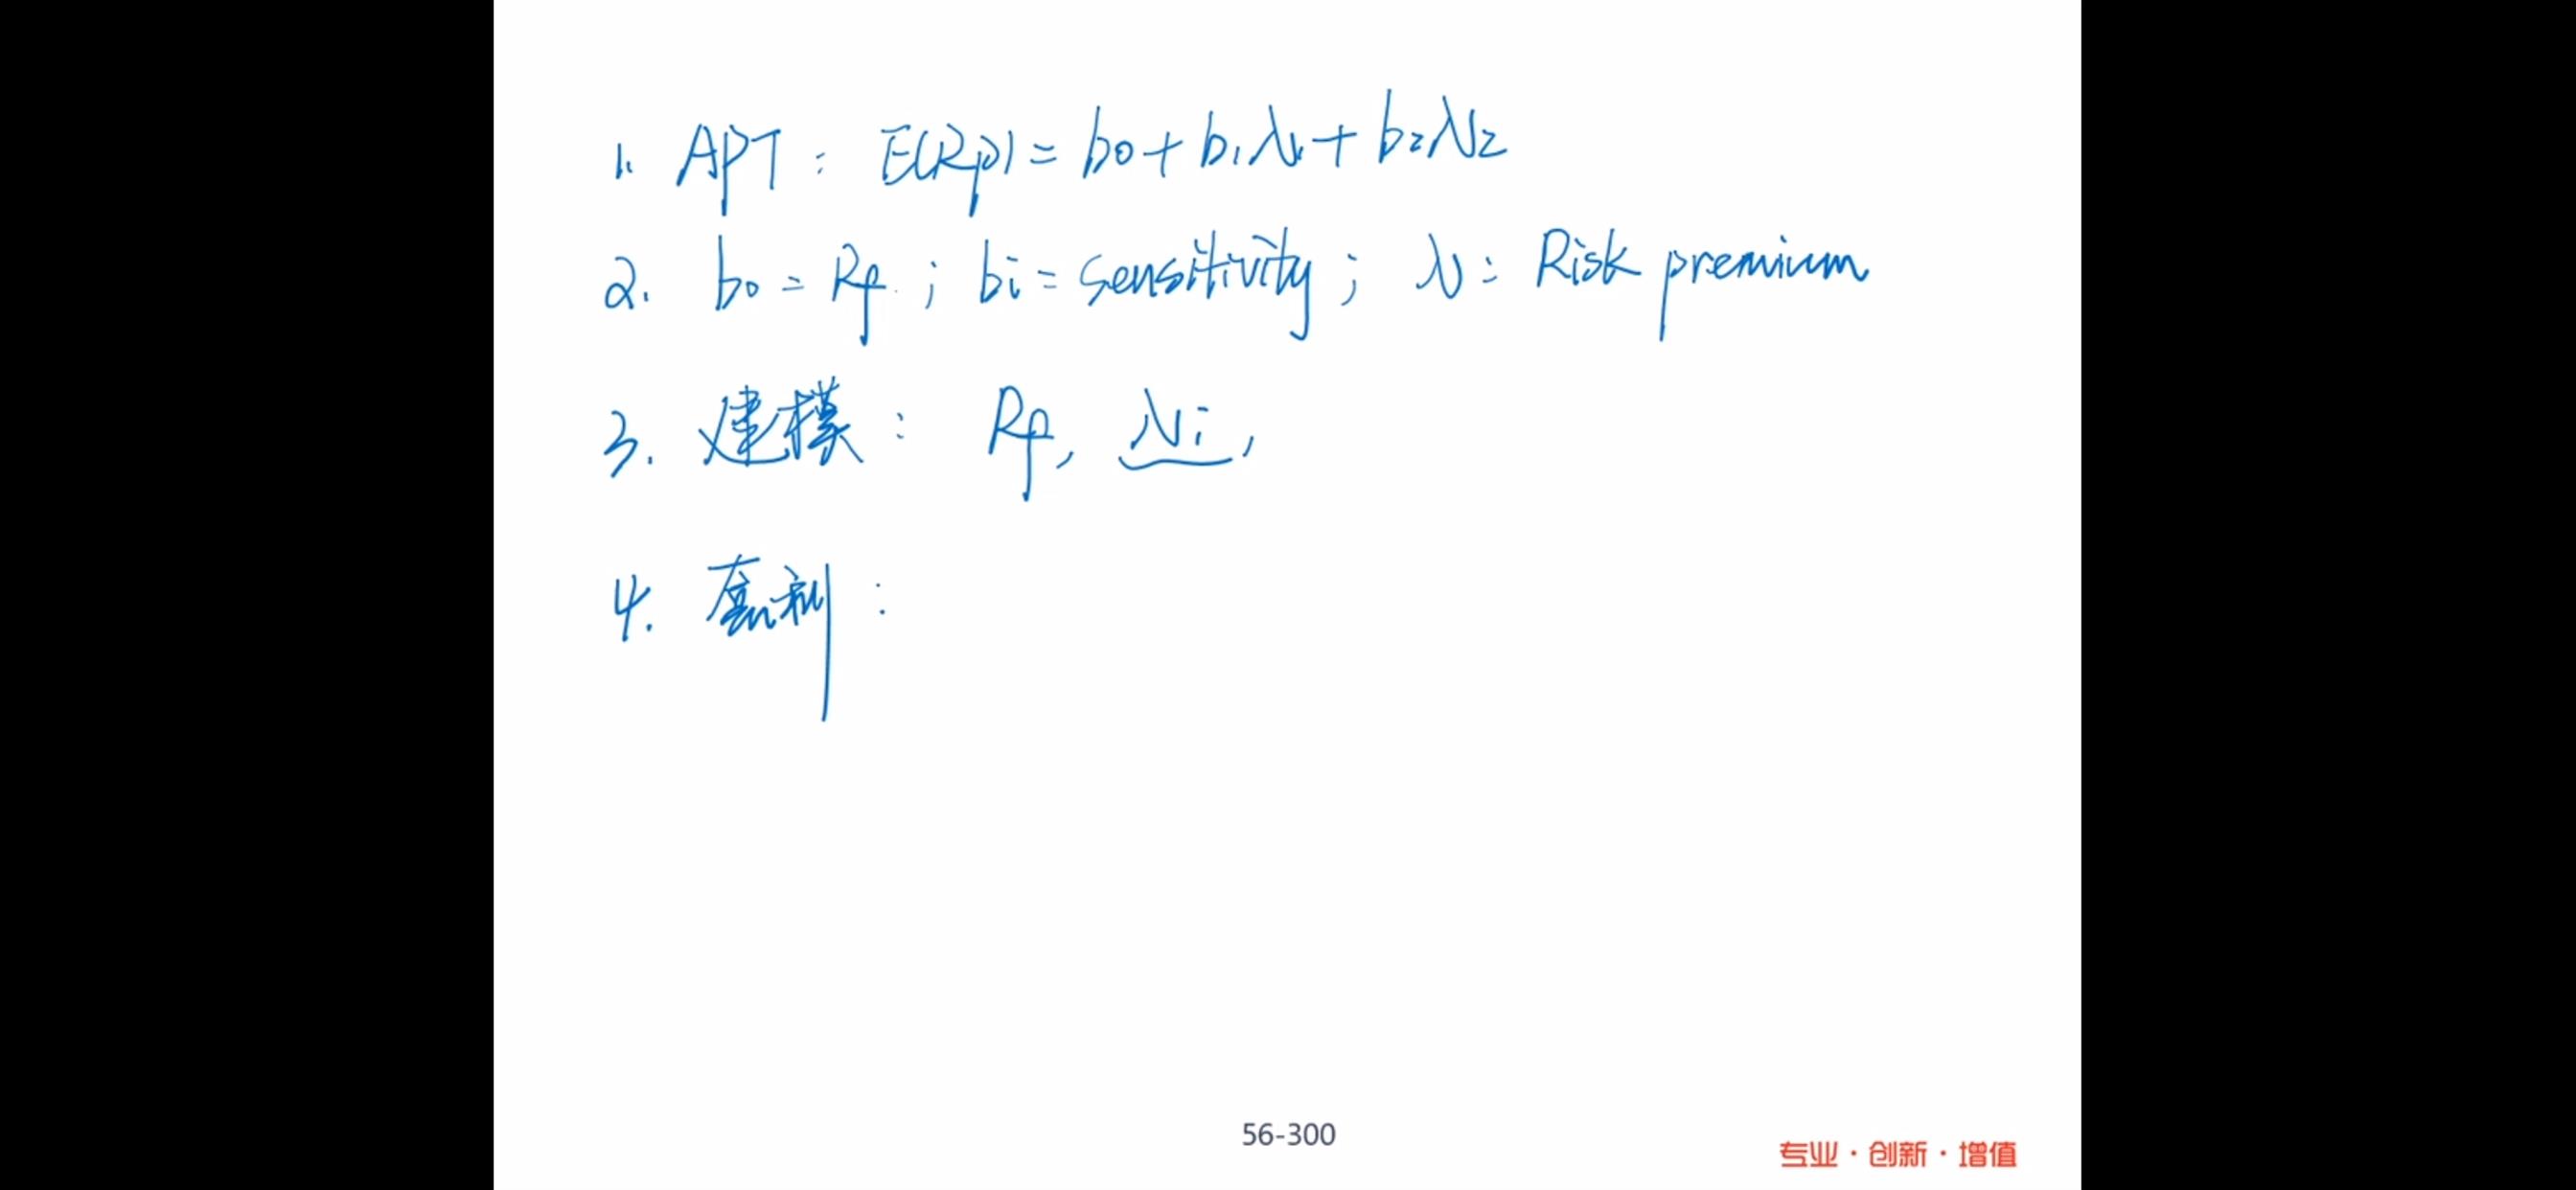 1. APT: E(Rp) = b0 + b1λ1 + b2λ2
2. b0 = Rf ; bi = sensitivity ; λ: Risk premium
3. 建模: Rf, λi,
4. 套利:
56-300
专业·创新·增值